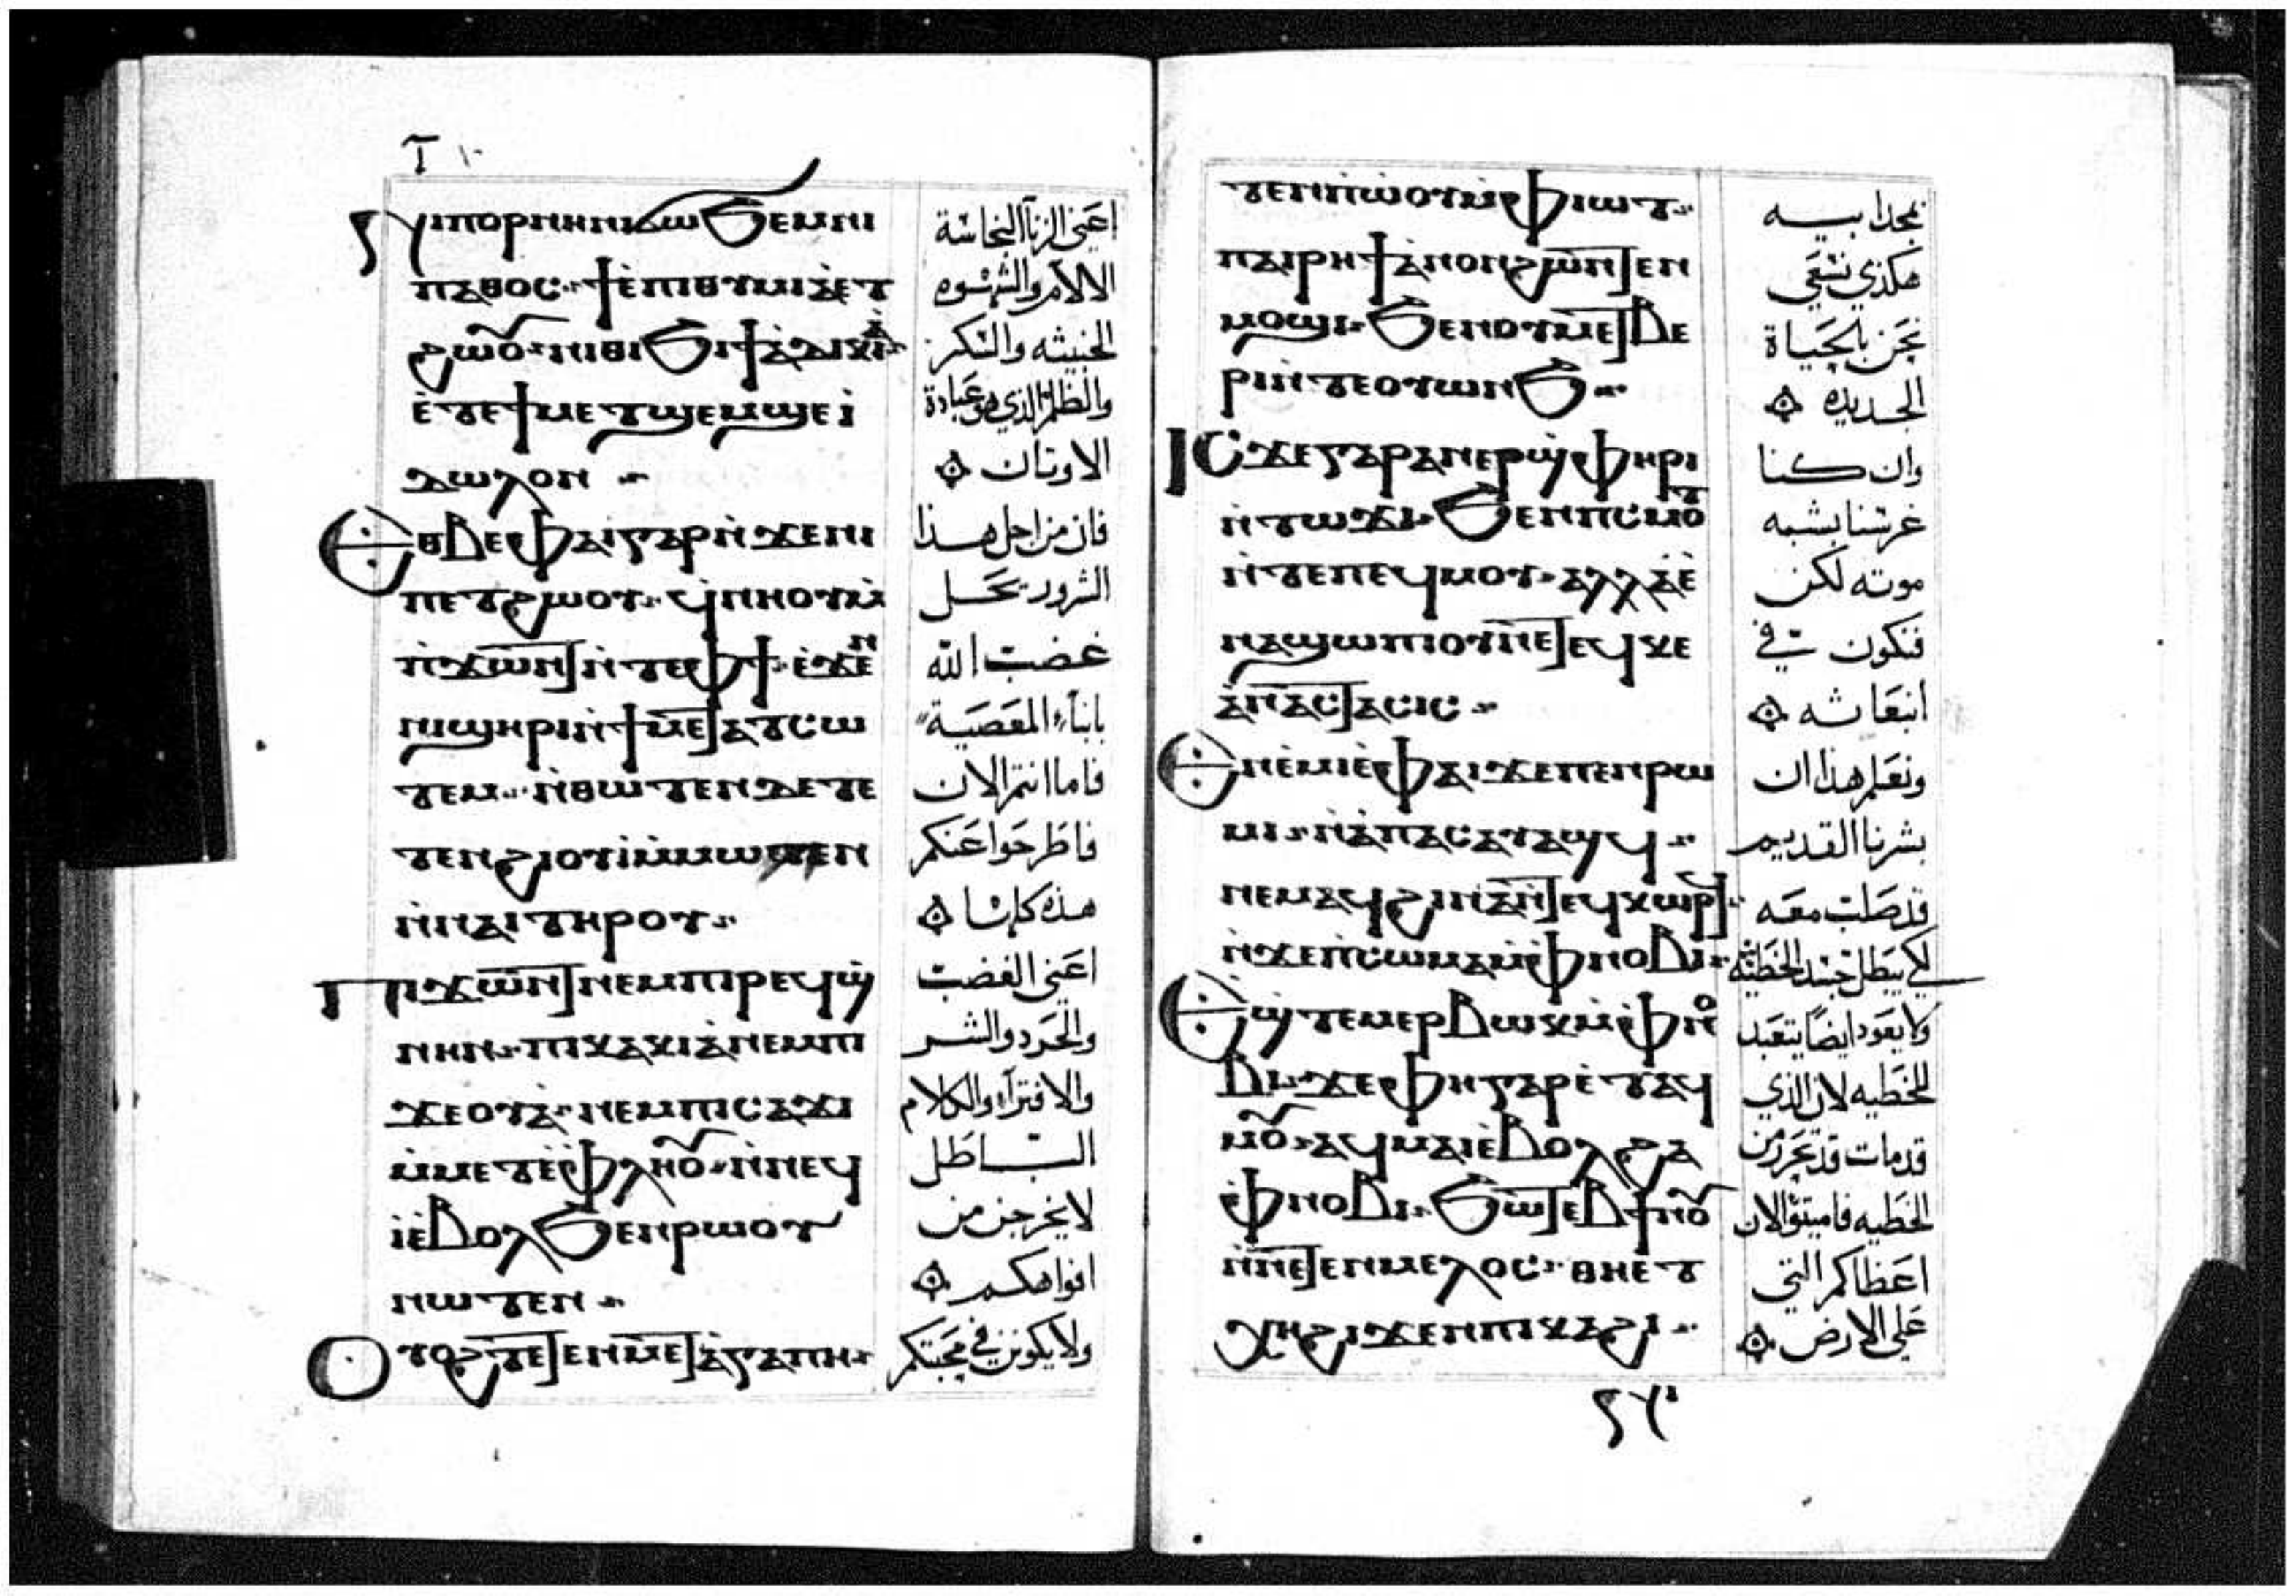 ⲡⲟⲣⲛⲏⲛⲓϭⲱϧⲉⲙⲛⲓ
ⲡⲁⲑⲟⲥ ϯⲉ̀ⲡⲓⲑⲩⲙⲓⲁ̀ⲉⲧ
ϩⲱⲟⲩ ⲛⲓⲑⲓϧⲓϯⲁ̀ⲇⲓⲕⲓⲁ̀
ⲉ̀ⲧⲉϯⲙⲉⲧϣⲉⲙϣⲉⲓ̀
ⲇⲱⲗⲟⲛ
ⲉⲑⲃⲉⲫⲁⲓⲅⲁⲣⲛ̀ϫⲉⲛⲓ
ⲡⲉⲧϩⲱⲟⲩ ϥ̀ⲛⲏⲟⲩⲙ̀
ⲡ̀ϫⲱⲛⲧⲛ̀ⲧⲉⲫϯ ⲉ̀ϫⲉⲛ
ⲛⲓϣⲏⲣⲓⲛ̀ϯⲙⲉⲧⲁⲧⲥⲱ
ⲧⲉⲙ ⲛ̀ⲑⲱⲧⲉⲛⲇⲉⲧⲉ
ⲧⲉⲛϩⲓⲟⲩⲓ̀ⲙ̀ⲙⲱⲧⲉⲛ
ⲛ̀ⲛⲁⲓⲧⲏⲣⲟⲩ
ⲡⲓϫⲱⲛⲧⲛⲉⲙⲡⲓⲣⲉϥϣ̀
ⲛⲏⲛ ⲡⲓⲭⲁⲕⲓⲁ̀ⲛⲉⲙⲡⲓ
ϫⲉⲟⲩⲁ̀ ⲛⲉⲙⲡⲓⲥⲁϫⲓ
ⲙ̀ⲙⲉⲧⲉ̀ⲫⲗⲏⲟⲩ ⲛ̀ⲛⲉϥ
ⲓ̀ⲉ̀ⲃⲟⲗϧⲉⲛⲣⲱⲟⲩ
ⲛⲱⲧⲉⲛ
ⲟⲩⲟϩⲧⲉⲧⲉⲛⲙⲉⲧⲁ̀ⲅⲁⲡⲏ
اعني الزنا النجاسة
الالام والشهوه
الخبيثه والسكر
والظلم الذي هو عبادة
الاوتان
فان من اجل هذا
الشرور تحل
غضب الله
بابناء المعصية
فاما انتم الان
فاطرحوا عنكم
هذه كلها
اعني الغضب
والحرد والشر
والافتراء والكلام
البـاطل
لا يخرجن من
افواهكم
ولا يكونن في محبتكم
ⲧⲉⲛⲡ̀ⲱ̀ⲟⲩⲙ̀ⲫⲓⲱⲧ
ⲡⲁⲓⲣⲏϯⲁ̀ⲛⲟⲛϩⲱⲛⲧⲉⲛ
ⲙⲟϣⲓ ϧⲉⲛⲟⲩⲙⲉⲧⲃⲉ
ⲣⲓⲛ̀ⲧⲉⲟⲩⲱⲛϧ
ⲓⲥϫⲉⲅⲁⲣⲁⲛⲉⲣϣ̀ⲫⲏⲣⲓ
ⲛ̀ⲧⲱϫⲓ ϧⲉⲛⲡⲥⲙⲟⲧ
ⲛ̀ⲧⲉⲡⲉϥⲙⲟⲩ ⲁⲗⲗⲁⲉ̀
ⲛⲁϣⲱⲡⲓⲟⲛⲛⲉⲧⲉϥⲕⲉ
ⲁ̀ⲛⲁⲥⲧⲁⲥⲓⲥ
ⲉⲛⲉ̀ⲙⲓⲉ̀ⲫⲁⲓϫⲉⲡⲉⲛⲣⲱ
ⲙⲓ ⲛ̀ⲁ̀ⲡⲁⲥⲁⲩⲁϣϥ
ⲛⲉⲙⲁϥϩⲓⲛⲁⲛ̀ⲧⲉϥⲕⲱⲣϥ
ⲛ̀ϫⲉⲡ̀ⲥⲱⲙⲁⲙ̀ⲫⲛⲟⲃⲓ
ⲉϣ̀ⲧⲉⲙⲉⲣⲃⲱⲕⲙ̀ⲫⲛⲟ
ⲃⲓ ϫⲉⲫⲏⲅⲁⲣⲉ̀ⲧⲁϥ
ⲙⲟⲩ ⲁϥⲙⲁⲓⲉ̀ⲃⲟⲗϩⲁ
ⲫⲛⲟⲃⲓ ϧⲱⲧⲉⲃϯⲛⲟⲩ
ⲛ̀ⲛⲉⲧⲉⲛⲙⲉⲗⲟⲥ ⲑⲏⲉⲧ
ⲭⲏϩⲓϫⲉⲛⲡⲓⲕⲁϩⲓ
بمجد ابيـه
هكذي نسعي
نحن بالحياة
الجديده
وان كنا
غرسنا بشبه
موته لكن
فنكون في
انبعاثه
ونعلم هذا ان
بشرنا القديم
قد صلب معه
لكي يبطل جسد الخطيه
ولا يعود ايضا يتعبد
للخطيه لان الذي
قد مات قد تحرر من
الخطيه فاميتوا الان
اعضاكم التي
علي الارض